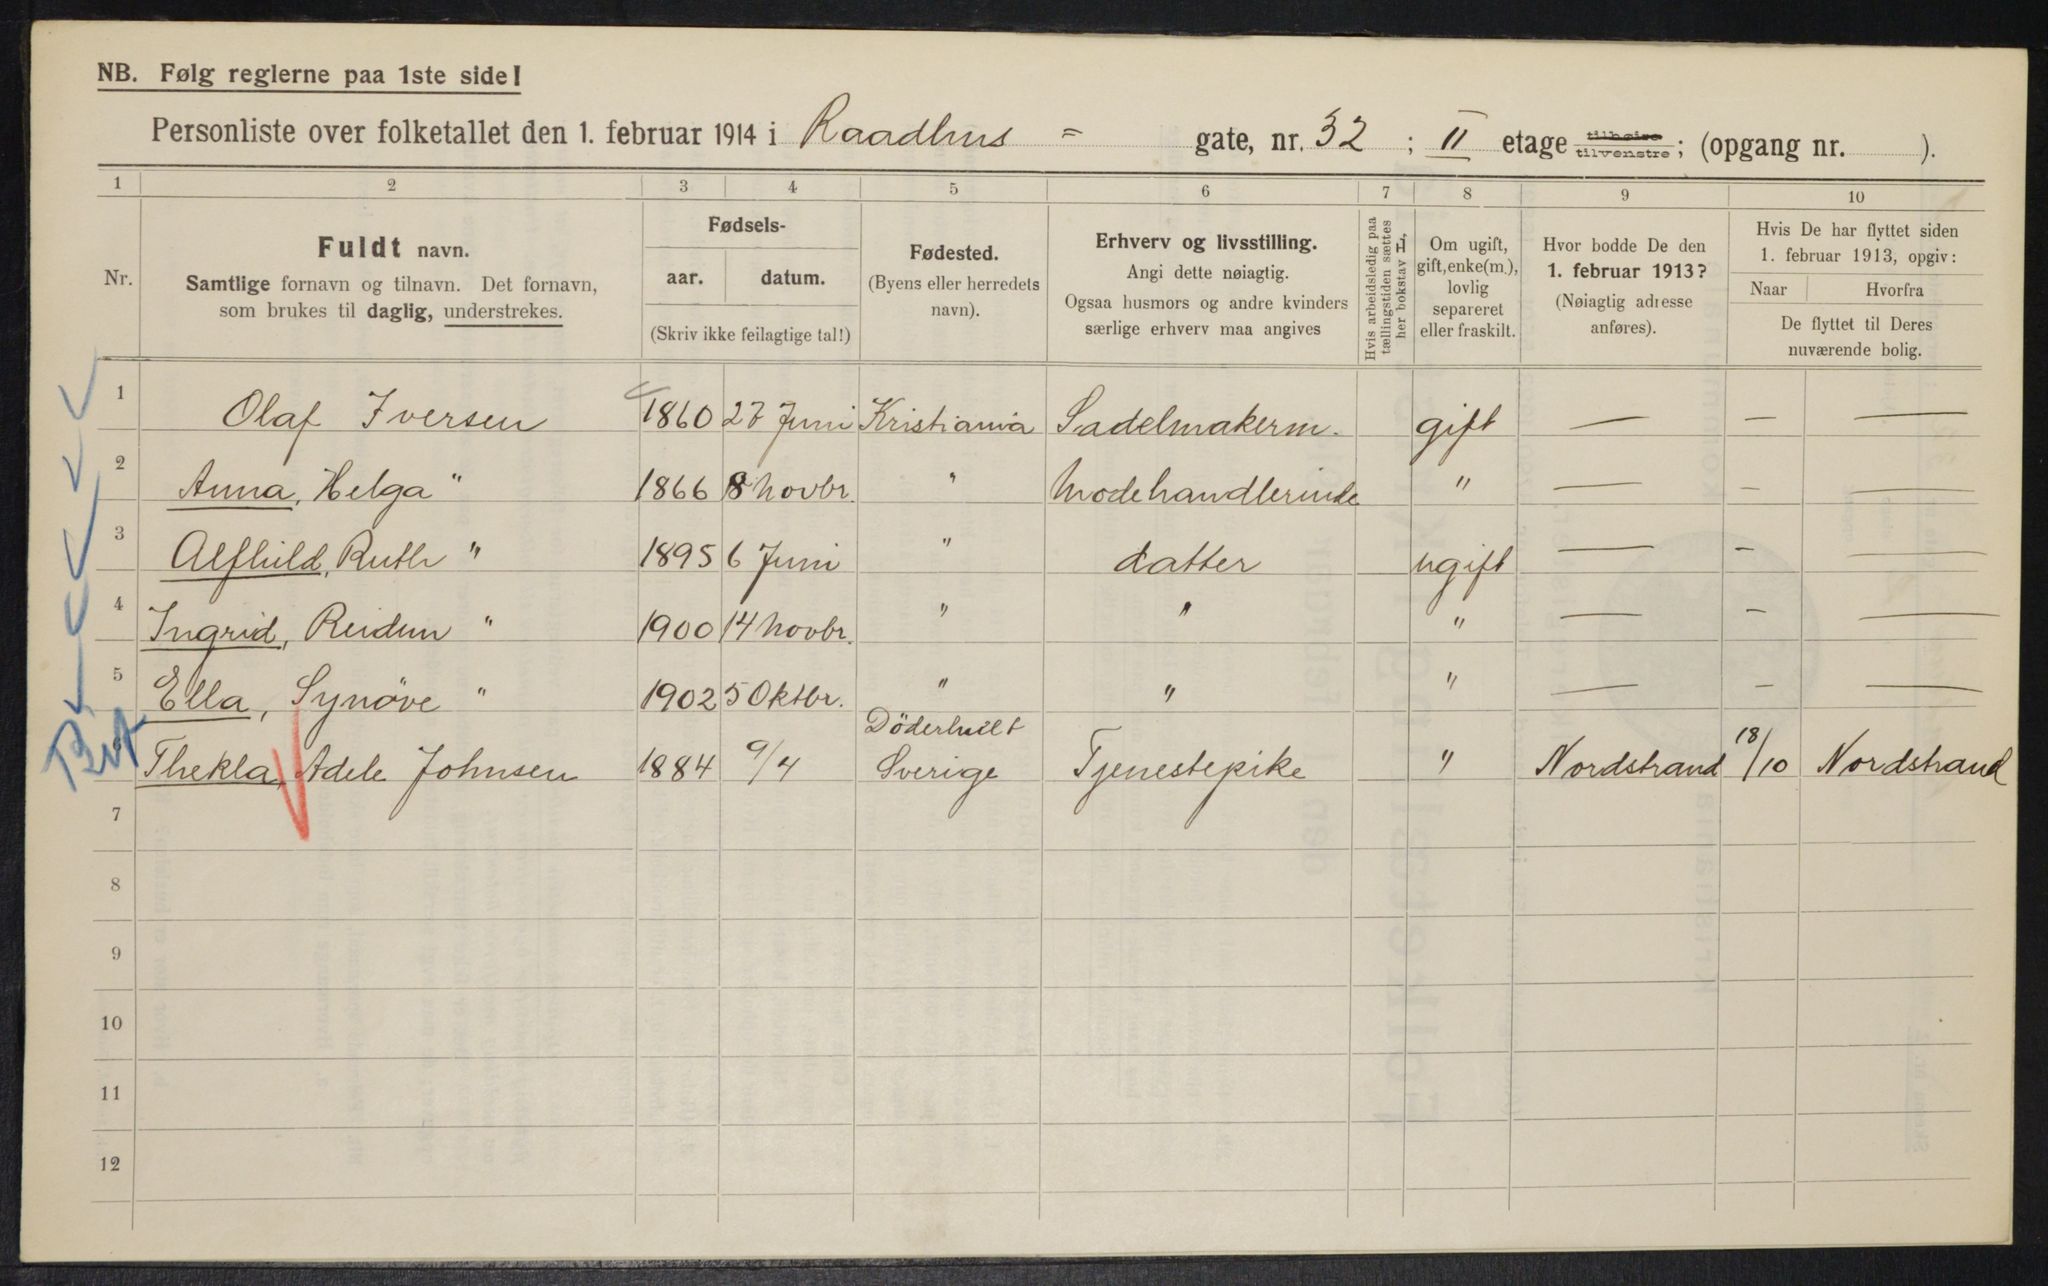 NB. Følg reglerne paa 1ste side!
Personliste over folketallet den 1. februar 1914 i Raadhus = gate, nr. 32 ; II etage tilhøire tilvenstre; (opgang nr. ).
1 2 3 4 5 6 7 8 9 10
Nr.
Fuldt navn.
Samtlige fornavn og tilnavn. Det fornavn,
som brukes til daglig, understrekes.
Fødsels-
aar. datum.
(Skriv ikke feilagtige tal!)
Fødested.
(Byens eller herredets
navn).
Erhverv og livsstilling.
Angi dette nøiagtig.
Ogsaa husmors og andre kvinders
særlige erhverv maa angives
Hvis arbeidsledig paa
tællingstiden sættes
her bokstav L,
Om ugift,
gift, enke(m.),
lovlig
separeret
eller fraskilt.
Hvor bodde De den
1. februar 1913?
(Nøiagtig adresse
anføres).
Hvis De har flyttet siden
1. februar 1913, opgiv:
Naar Hvorfra
De flyttet til Deres
nuværende bolig.
1 Olaf Iversen 1860 27 Juni Kristiania Sadelmakerm. gift — — —
2 Anna, Helga " 1866 8 Novbr. " Modehandlerinde " — — —
3 Alfhild, Ruth " 1895 6 Juni " datter ugift — — —
4 Ingrid, Reidun " 1900 14 Novbr. " " " — — —
5 Ella, Synöve " 1902 5 Oktbr. " " " — — —
6 Thekla, Adele Johnsen 1884 9/4 Döderhult Sverige Tjenestepike " Nordstrand 18/10 Nordstrand
7
8
9
10
11
12